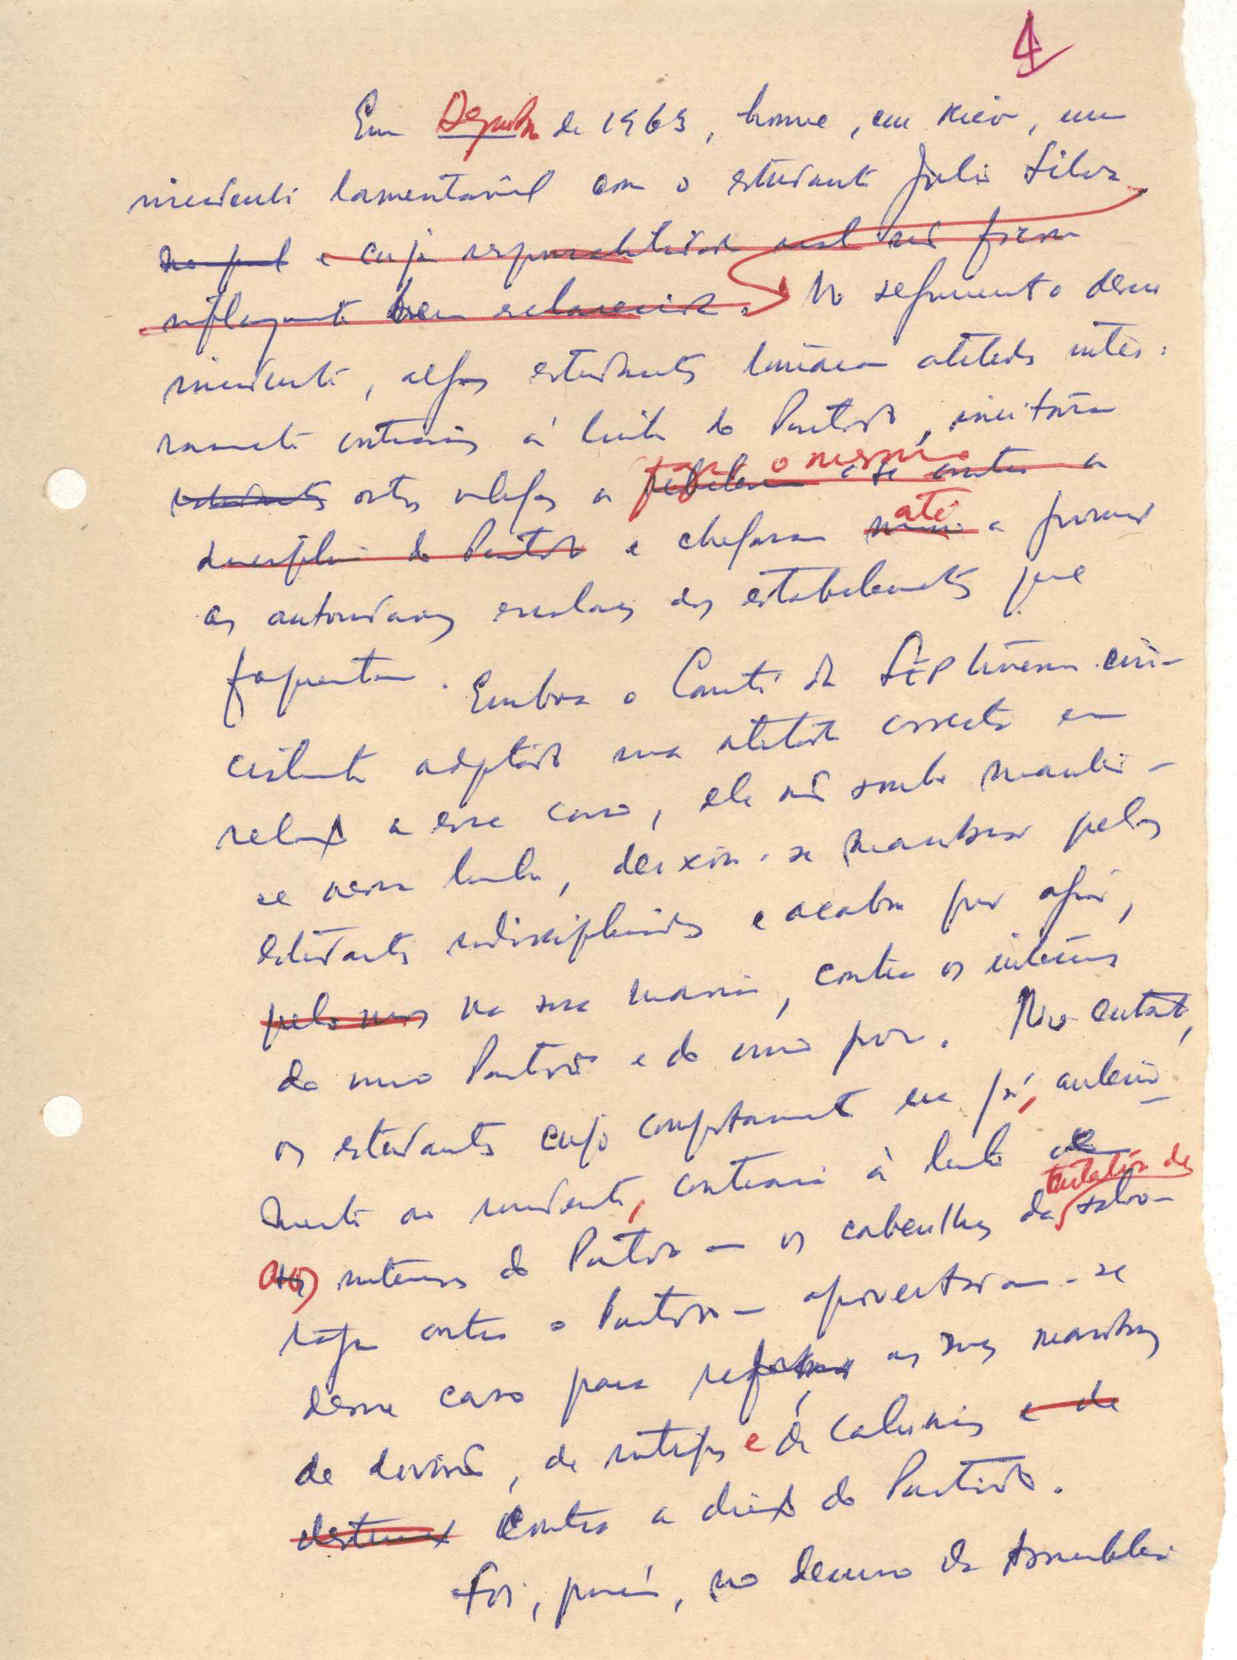 4
Em Dezembro de 1963, houve, em Kiev, um
incidente lamentável com o estudante Julio Silva
no qual e cuja responsabilidade real não ficou
suficientemente bem esclarecida. No seguimento desse
incidente, alguns estudantes tomaram atitudes intei-
ramente contrárias à linha do Partido, incitaram
estudantes outros colegas a fazer o mesmo
disciplina do Partido e chegaram até a
as autoridades escolares dos estabelecimentos que
frequentam. Embora o Comité da SEP tivesse ini-
cialmente adoptado uma atitude correcta em
relação a esse caso, ele não soube manter-
se nessa linha, deixou-se manobrar pelos
estudantes indisciplinados e acabou por agir,
pelo menos na sua maioria, contra os interesses
do nosso Partido e do nosso povo. No entanto,
os estudantes cujo comportamento era já, anterior-
mente ao incidente, contrário à linha e
aos interesses do Partido — os cabecilhas da tentativa de sabo-
tagem contra o Partido — aproveitaram-se
desse caso para reforçar as suas manobras
de divisão, de intrigas e de calúnias e de
contra a direcção do Partido.
Foi, porém, no decurso da Assembleia